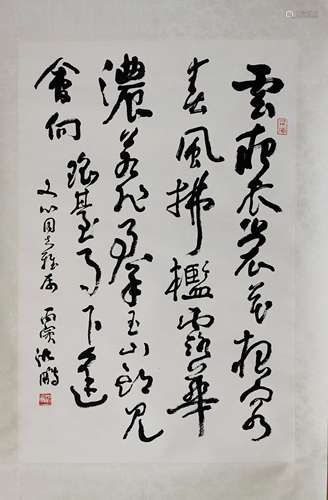 雲想衣裳花想容
春風拂檻露華
濃若非群玉山頭見
會向瑤臺月下逢
同志雅属 丙寅 沈鵬